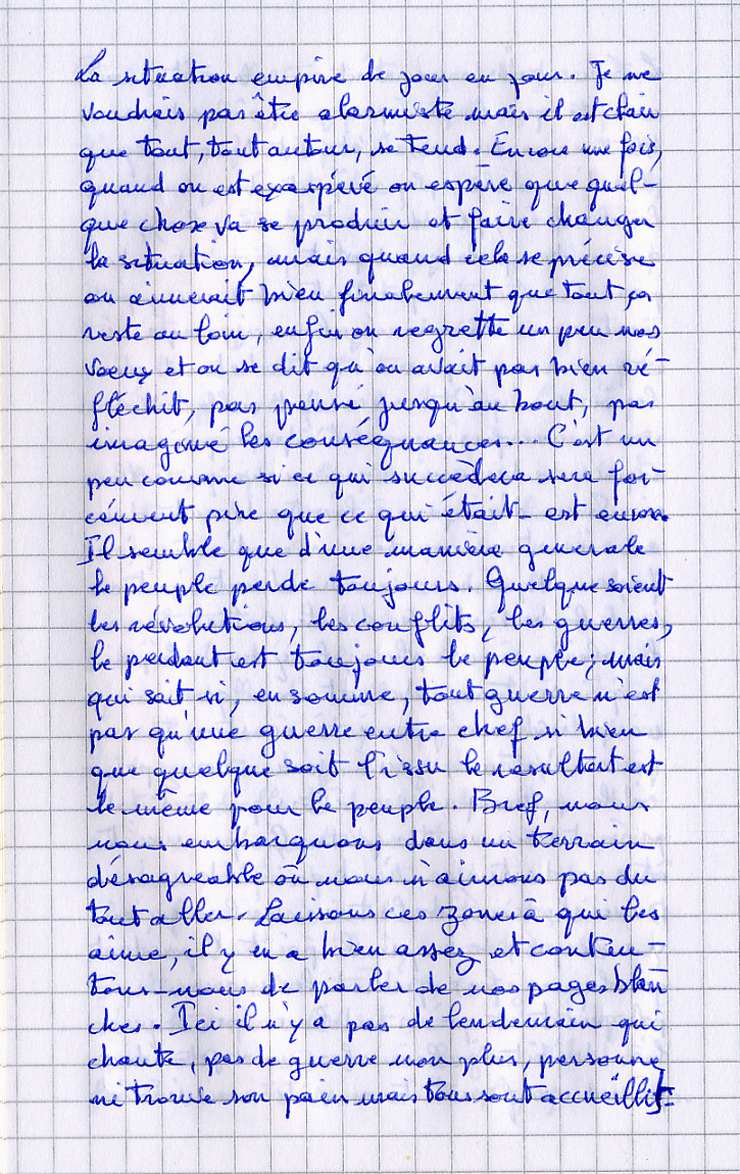 La situation empire de jour en jour. Je ne
voudrais pas être alarmiste mais il est clair
que tout, tout autour, se tend. Encore une fois,
quand on est exaspéré on espère que quel-
que chose va se produire et faire changer
la situation, mais quand cela se précise
on aimerait bien finalement que tout ça
reste au loin, enfin on regrette un peu nos
voeux et on se dit qu'on avait pas bien ré-
fléchit, pas pensé jusqu'au bout, pas
imaginé les conséquances... C'est un
peu comme si ce qui succèdera sera for-
cément pire que ce qui était - est encore.
Il semble que d'une manière generale
le peuple perde toujours. Quelque soient
les révolutions, les conflits, les guerres,
le perdant est toujours le peuple; mais
qui sait si, en somme, tout guerre n'est
pas qu'une guerre entre chef si bien
que quelque soit l'issu le résultat est
le même pour le peuple. Bref, nous
nous embarquons dans un terrain
désagréable où nous n'aimons pas du
tout aller. Laissons ces zones à qui les
aime, il y en a bien assez et conten-
tons-nous de parler de nos pages blan
ches. Ici il n'y a pas de lendemain qui
chante, pas de guerre non plus, personne
ni trouve son pain mais tous sont accueillis